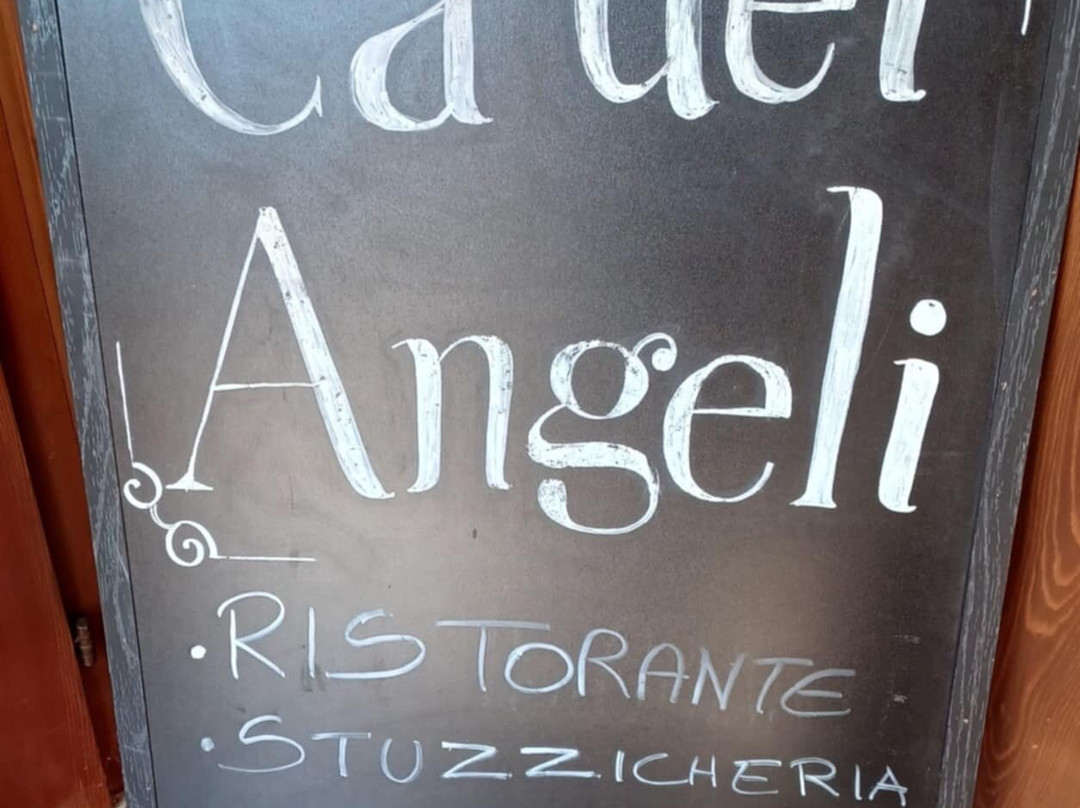 Ca dei
Angeli
·RISTORANTE
·STUZZICHERIA